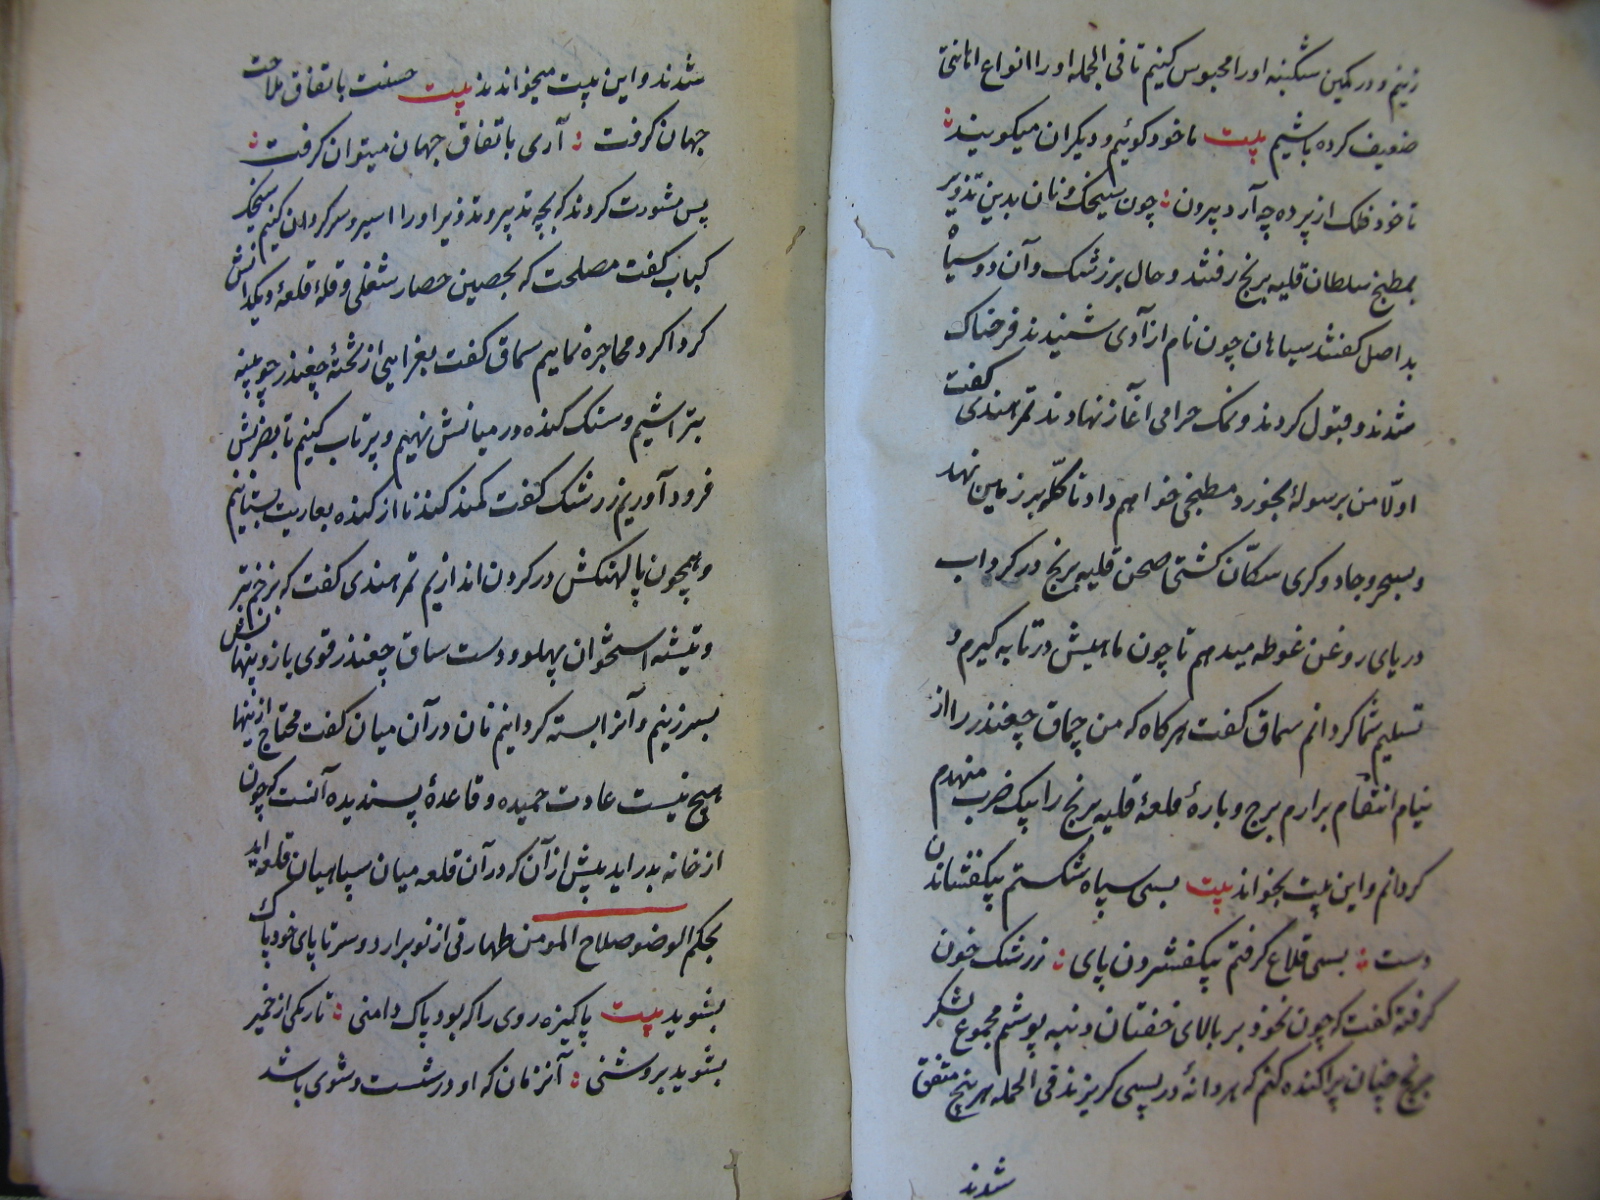 زنیم و در کمین سکنبه او را محبوس کنیم تا فی الجمله او را انواع اهانتی
ضعیف کرده باشیم بیت ما خود کوئیم و دیکران میکویند
تا خود فلک از پرده چه آرد بیرون چون سیخک و نان بدین تذویر
بمطبخ سلطان قلیه برنج رفتند و حال برزشک و آن دو سیاه
بد اصل کفتند سیاهان چون نام از آدی شنیدند فرحناک
شدند و قبول کردند و نمک حرامی آغاز نهادند تمر هندی کفت
اولا من برسولی بجوزد مطبخی خواهم داد تا کله بر زمین نهد
و بسحر و جادوکری سکان کشتی صحن قلیه برنج در کرداب
دریای روغن غوطه میدهم تا چون ماهیش در تابه کیرم و
تسلیم شما کردانم سماق کفت هرکاه که من چماق چغندر را از
نیام انتقام برارم برج و بارهٔ قلعهٔ قلیه برنج را بیک ضرب منهدم
کردانم و این بیت بخواند بیت بسی سپاه شکستم بیکفشاندن
دست بسی قلاع کرفتم بیکفشردن پای زرشک خون
کرفته کفت که چون نخود بر بالای خفتان دنبه پوشم مجموع لشکر
برنج چنان پراکنده کنم که هر دانهٔ در پسی کریزند فی الجمله هر پنج متفق
شدند
شدند و این بیت میخواندند بیت حسنت باتفاق ملاحت
جهان کرفت آری باتفاق جهان میتوان کرفت
پس مشورت کردند که بچه تدبیر و تذویر او را اسیر و سرکردان کنیم سیخک
کباب کفت مصلحت که بحصین حصار شغلی و قلهٔ قلعهٔ دیکدانش
کرداکرد محاجره نماییم سماق کفت بغرایی از تختهٔ چغندر چوبینه
بتراشیم و سنک کنده در میانش نهیم و پرتاب کنیم تا بضربش
فرود آوریم زرشک کفت کمند کندنا از کنده بعاریت بستانیم
و همچون پالهنکش در کردن اندازیم تمر هندی کفت که بزخم تبر
و تیشه استخوان پهلو و دست ساق چغندر قوی بازو پنهانش
بسر زنیم و آنرا بسته کردانیم نان در آن میان کفت محتاج از ینها
هیچ نیست عادت حمیده و قاعدهٔ پسندیده آنست که چون
از خانه بدر اید پیش از آن که در آن قلعه میان سپاهیان قلعه اید
بحکم الوضو صلاح المومن طهارتی از نو برارد و سر تا پای خود پاک
بشوید بیت پاکیزه روی را که بود پاک دامنی تاریکی از خمیر
بشوید بروشنی آنزمان که او در شست و شوی باشد